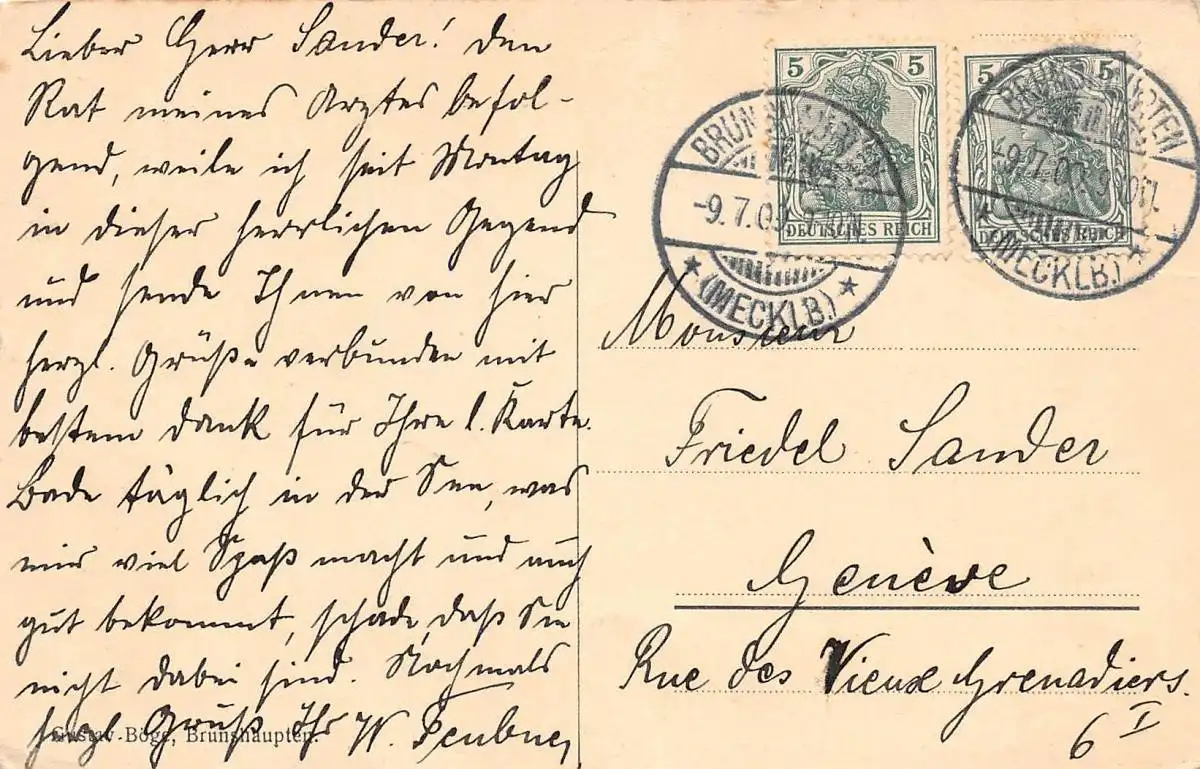 Lieber Herr Sander! Den
Rat meines Arztes befol-
gend, weile ich seit Montag
in dieser herrlichen Gegend
und sende Ihnen von hier
herzl. Grüße verbunden mit
bestem Dank für Ihre l. Karte.
Bade täglich in der See, was
mir viel Spaß macht und auch
gut bekommt, schade, daß Sie
nicht dabei sind. Nochmals
herzl. Gruß Ihr W.
Gustav Böge, Brunshaupten.
5 5
DEUTSCHES REICH
5 5
DEUTSCHES REICH
BRUNSHAUPTEN
-9.7.09
(MECKLB.)
BRUNSHAUPTEN
-9.7.09
(MECKLB.)
Monsieur
Friedel Sander
Genève
Rue des Vieux Grenadiers.
6 I